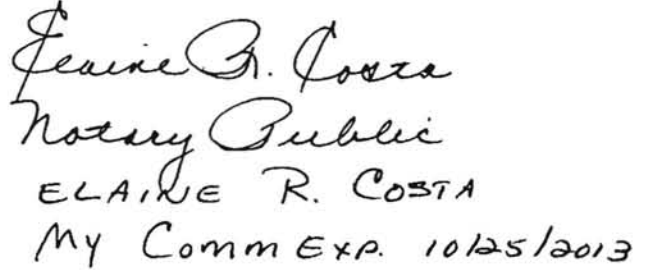 Elaine R. Costa
Notary Public
ELAINE R. COSTA
My Comm Exp. 10/25/2013